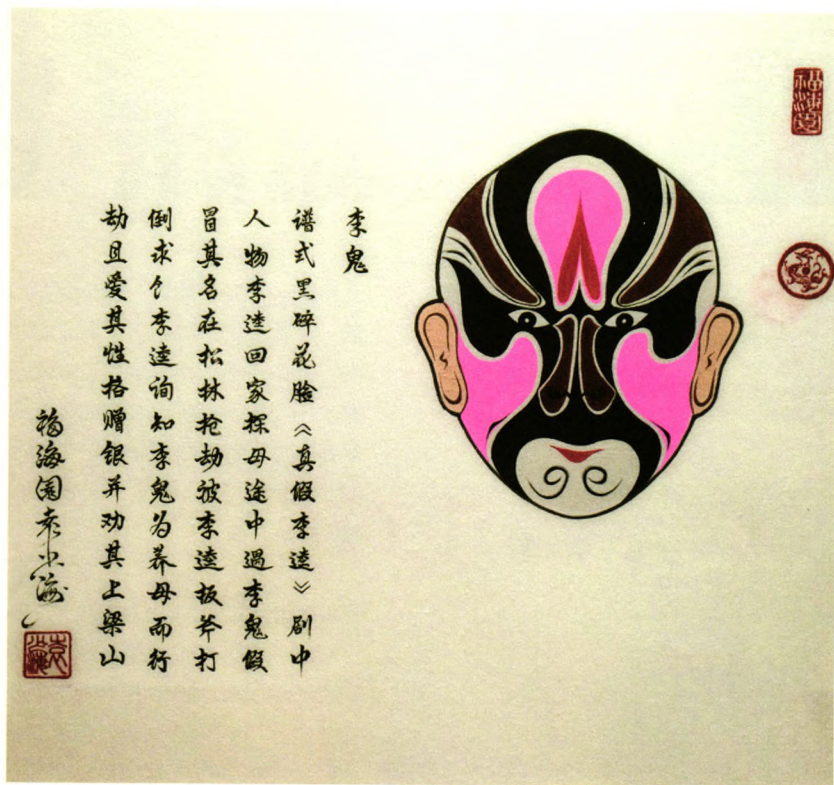 李鬼
谱式黑碎花脸《真假李逵》剧中
人物李逵回家探母途中遇李鬼假
冒其名在松林抢劫被李逵板斧打
倒求饣李逵询知李鬼为养母而行
劫且爱其性格赠银并劝其上梁山
福海园袁小海
福海园